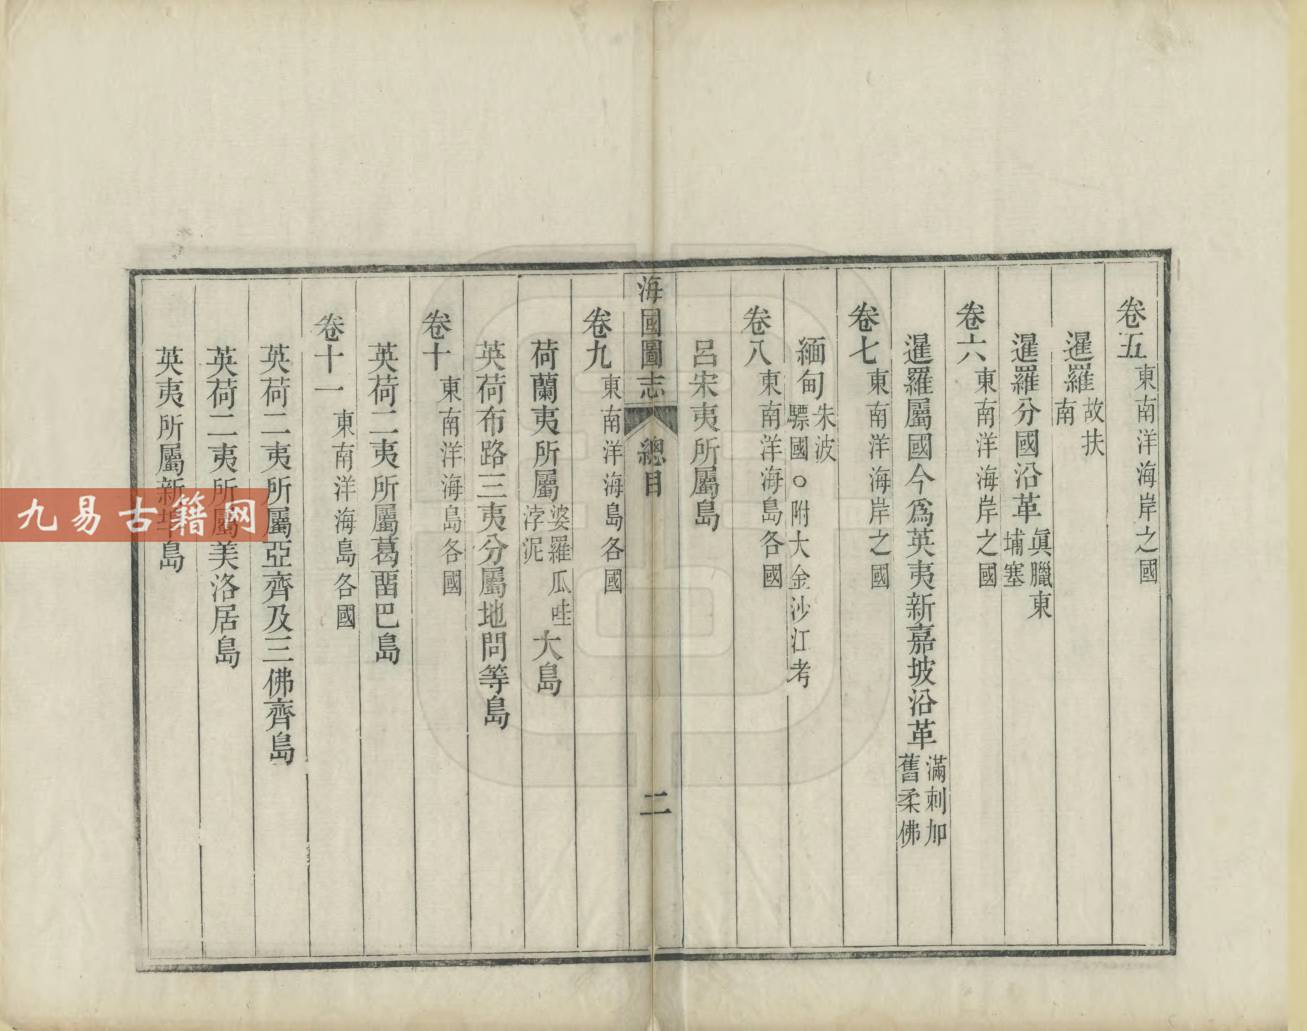 卷五 東南洋海岸之國
暹羅 故扶南
暹羅分國沿革 眞臘東埔塞
卷六 東南洋海岸之國
暹羅屬國今爲英夷新嘉坡沿革 滿剌加舊柔佛
卷七 東南洋海岸之國
緬甸 朱波驃國○附大金沙江考
卷八 東南洋海島各國
呂宋夷所屬島
海國圖志 總目 二
卷九 東南洋海島各國
荷蘭夷所屬 婆羅瓜哇浡泥 大島
英荷布路三夷分屬地問等島
卷十 東南洋海島各國
英荷二夷所屬葛畱巴島
卷十一 東南洋海島各國
英荷二夷所屬亞齊及三佛齊島
英荷二夷所屬美洛居島
英夷所屬新埠島
九易古籍网